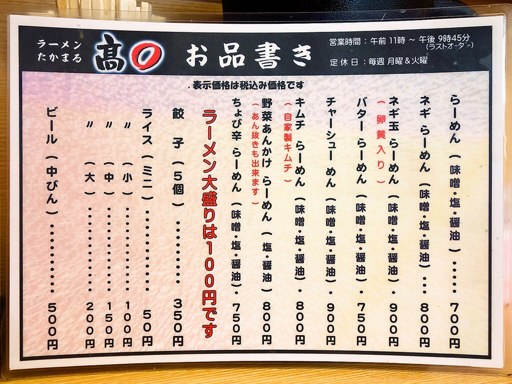 ラーメン
たかまる
髙〇
お品書き
営業時間：午前11時～午後9時45分
（ラストオーダー）
定休日：毎週 月曜＆火曜
．表示価格は税込み価格です
らーめん（味噌・塩・醤油）‥‥‥700円
ネギ らーめん（味噌・塩・醤油）‥‥800円
ネギ玉 らーめん（味噌・塩・醤油）・900円
（卵黄入り）
バター らーめん（味噌・塩・醤油）・750円
チャーシューめん（味噌・塩・醤油）・900円
キムチ らーめん（味噌・塩・醤油）・800円
（自家製キムチ）
野菜あんかけ らーめん（塩・醤油）・800円
（あん抜きも出来ます）
ちょび辛 らーめん（味噌・塩・醤油）・750円
ラーメン大盛りは100円です
餃子（5個）‥‥‥‥‥350円
ライス（ミニ）‥‥‥‥‥50円
〃（小）‥‥‥‥‥100円
〃（中）‥‥‥‥‥150円
〃（大）‥‥‥‥‥200円
ビール（中びん）‥‥‥‥‥500円